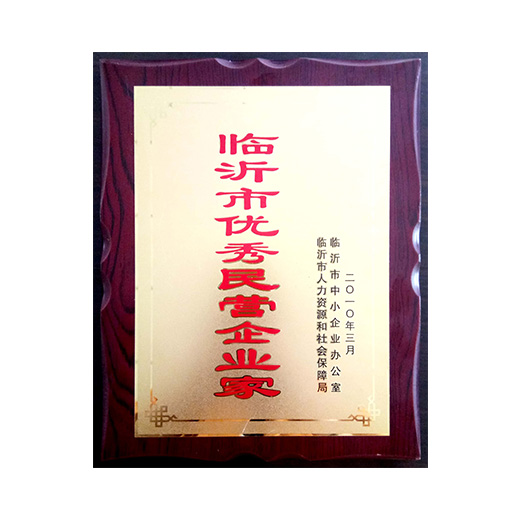 临沂市优秀民营企业家
临沂市中小企业办公室
临沂市人力资源和社会保障局
二〇一〇年三月